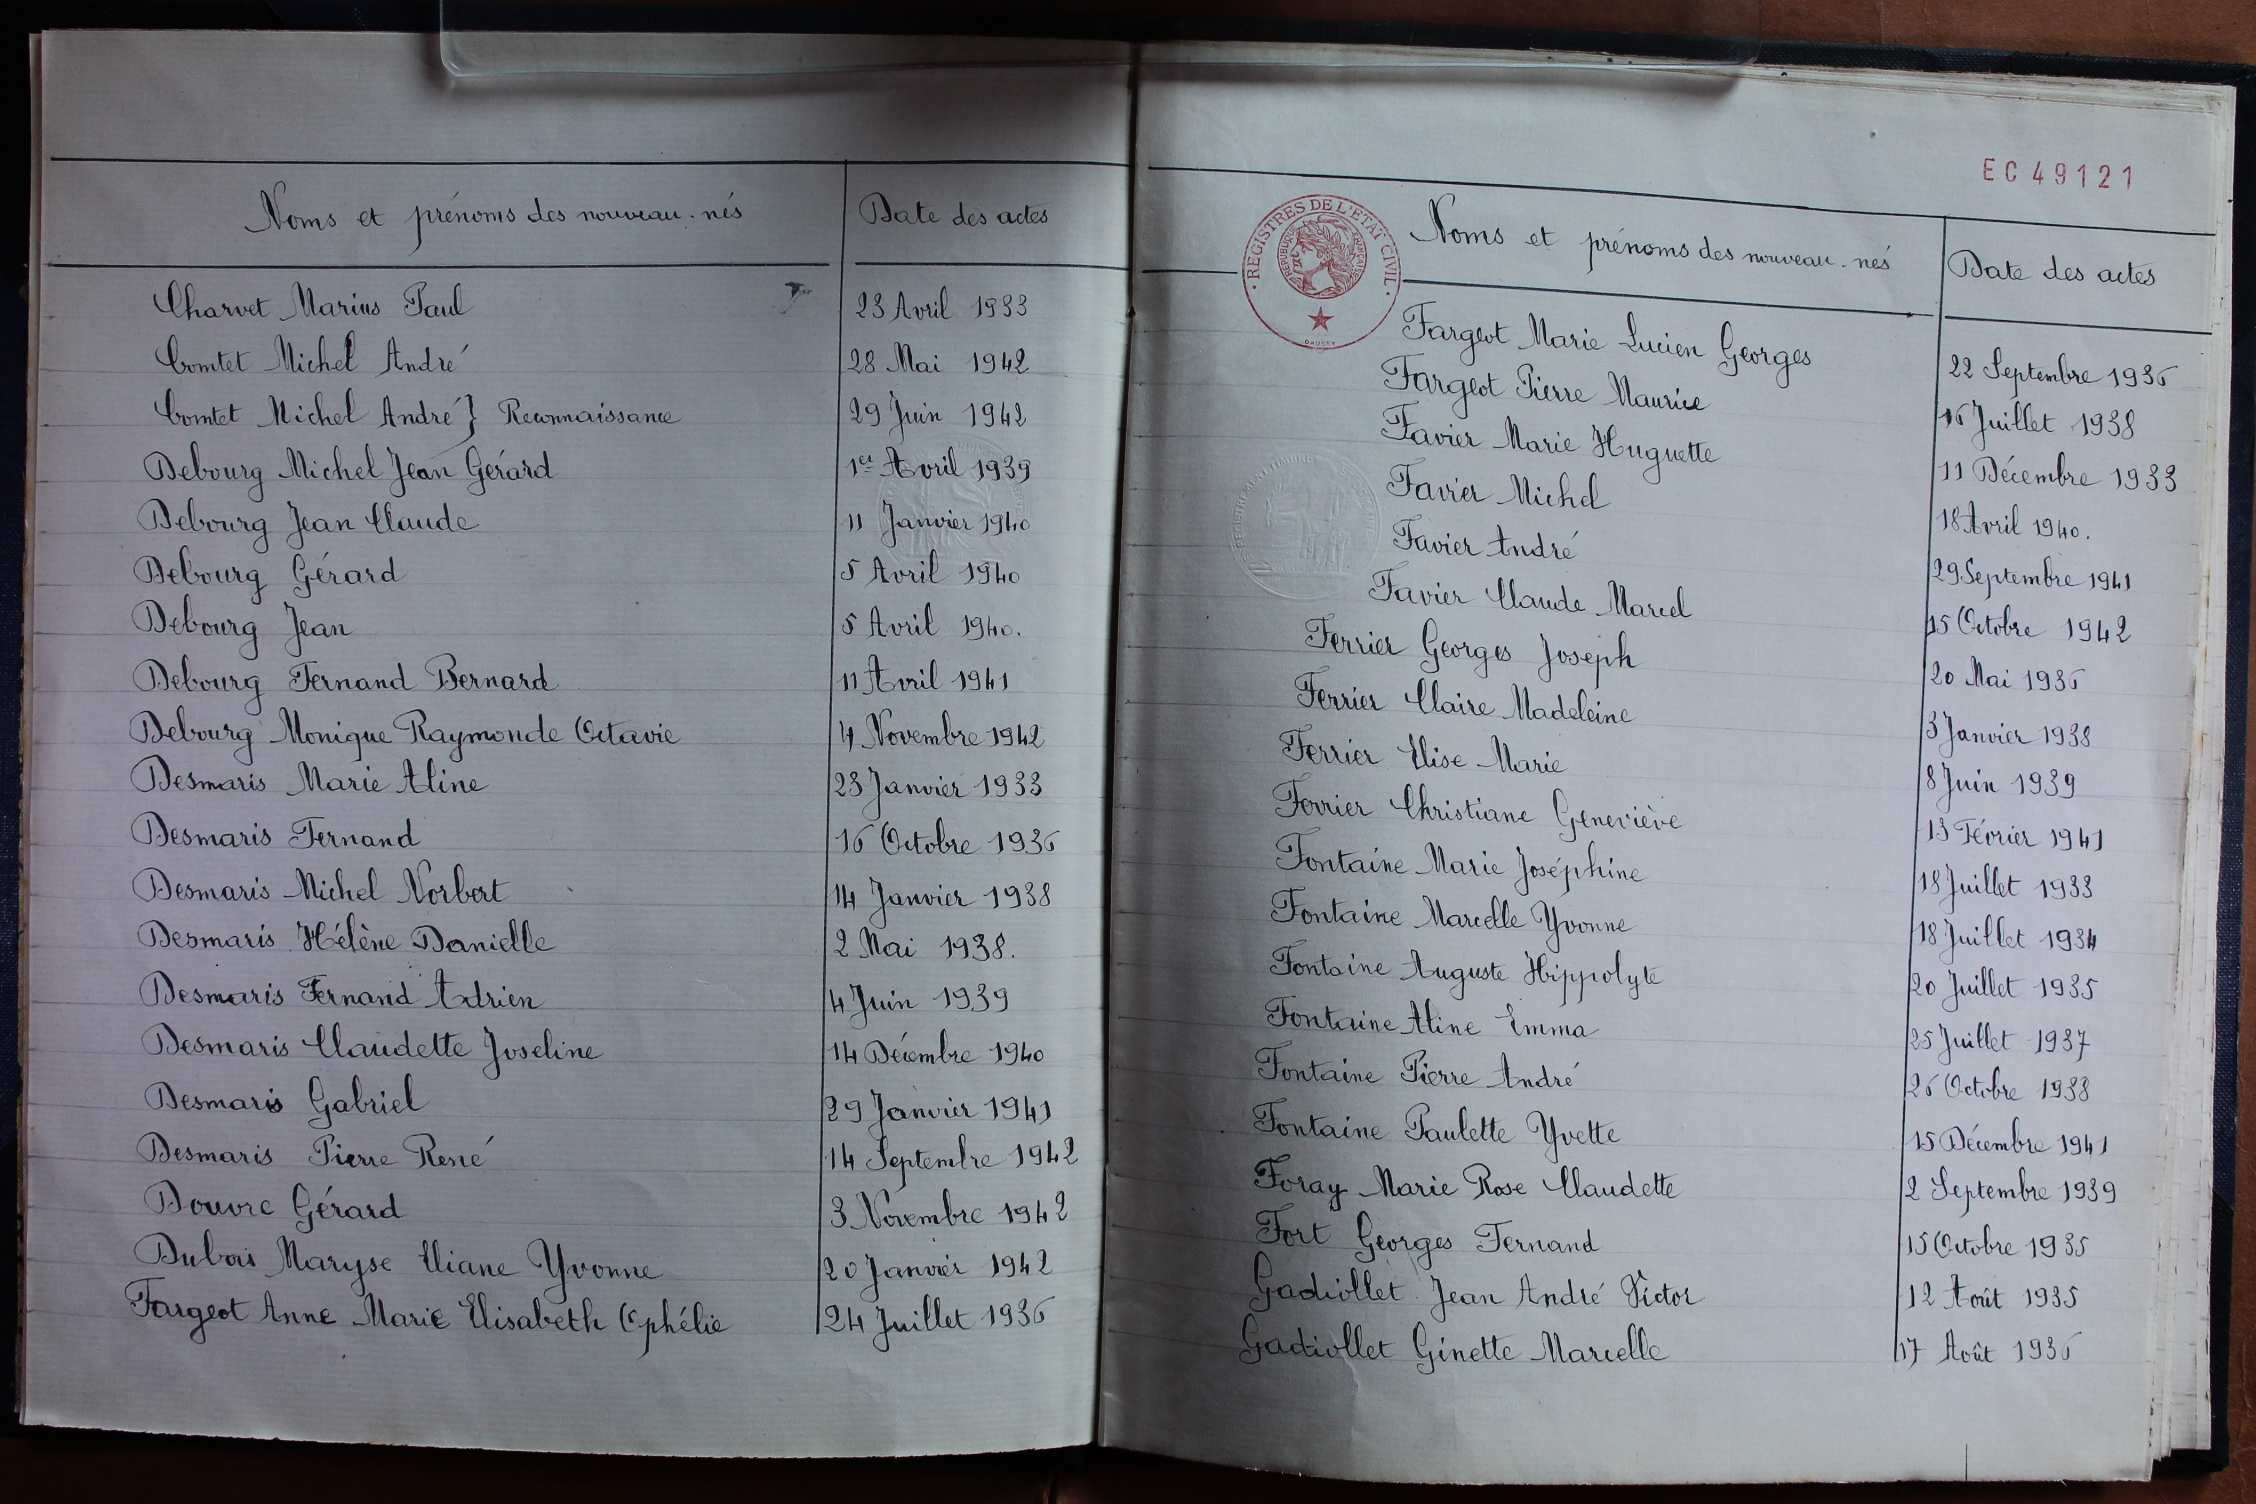 Noms et prénoms des nouveau-nés Date des actes
Charvet Marius Paul 23 Avril 1933
Comtet Michel André 28 Mai 1942
Comtet Michel André } Reconnaissance 29 Juin 1942
Debourg Michel Jean Gérard 1er Avril 1939
Debourg Jean Claude 11 Janvier 1940
Debourg Gérard 5 Avril 1940
Debourg Jean 5 Avril 1940.
Debourg Fernand Bernard 11 Avril 1941
Debourg Monique Raymonde Octavie 4 Novembre 1942
Desmaris Marie Aline 23 Janvier 1933
Desmaris Fernand 16 Octobre 1936
Desmaris Michel Norbert 14 Janvier 1938
Desmaris Hélène Danielle 2 Mai 1938.
Desmaris Fernand Adrien 4 Juin 1939
Desmaris Claudette Joseline 14 Décembre 1940
Desmaris Gabriel 29 Janvier 1941
Desmaris Pierre René 14 Septembre 1942
Douvre Gérard 3 Novembre 1942
Dubois Maryse Eliane Yvonne 20 Janvier 1942
Fargeot Anne Marie Elisabeth Ophélie 24 Juillet 1936
EC 49121
REGISTRES DE L'ETAT CIVIL
REPUBLIQUE FRANÇAISE
Noms et prénoms des nouveau-nés Date des actes
Fargeot Marie Lucien Georges 22 Septembre 1936
Fargeot Pierre Maurice 16 Juillet 1938
Favier Marie Huguette 11 Décembre 1933
Favier Michel 18 Avril 1940.
Favier André 29 Septembre 1941
Favier Claude Marcel 15 Octobre 1942
Ferrier Georges Joseph 20 Mai 1936
Ferrier Claire Madeleine 3 Janvier 1938
Ferrier Elise Marie 8 Juin 1939
Ferrier Christiane Geneviève 13 Février 1941
Fontaine Marie Joséphine 18 Juillet 1933
Fontaine Marcelle Yvonne 18 Juillet 1934
Fontaine Auguste Hippolyte 20 Juillet 1935
Fontaine Aline Emma 25 Juillet 1937
Fontaine Pierre André 26 Octobre 1938
Fontaine Paulette Yvette 15 Décembre 1941
Foray Marie Rose Claudette 2 Septembre 1939
Fort Georges Fernand 15 Octobre 1935
Gadiollet Jean André Victor 12 Août 1935
Gadiollet Ginette Marcelle 17 Août 1936